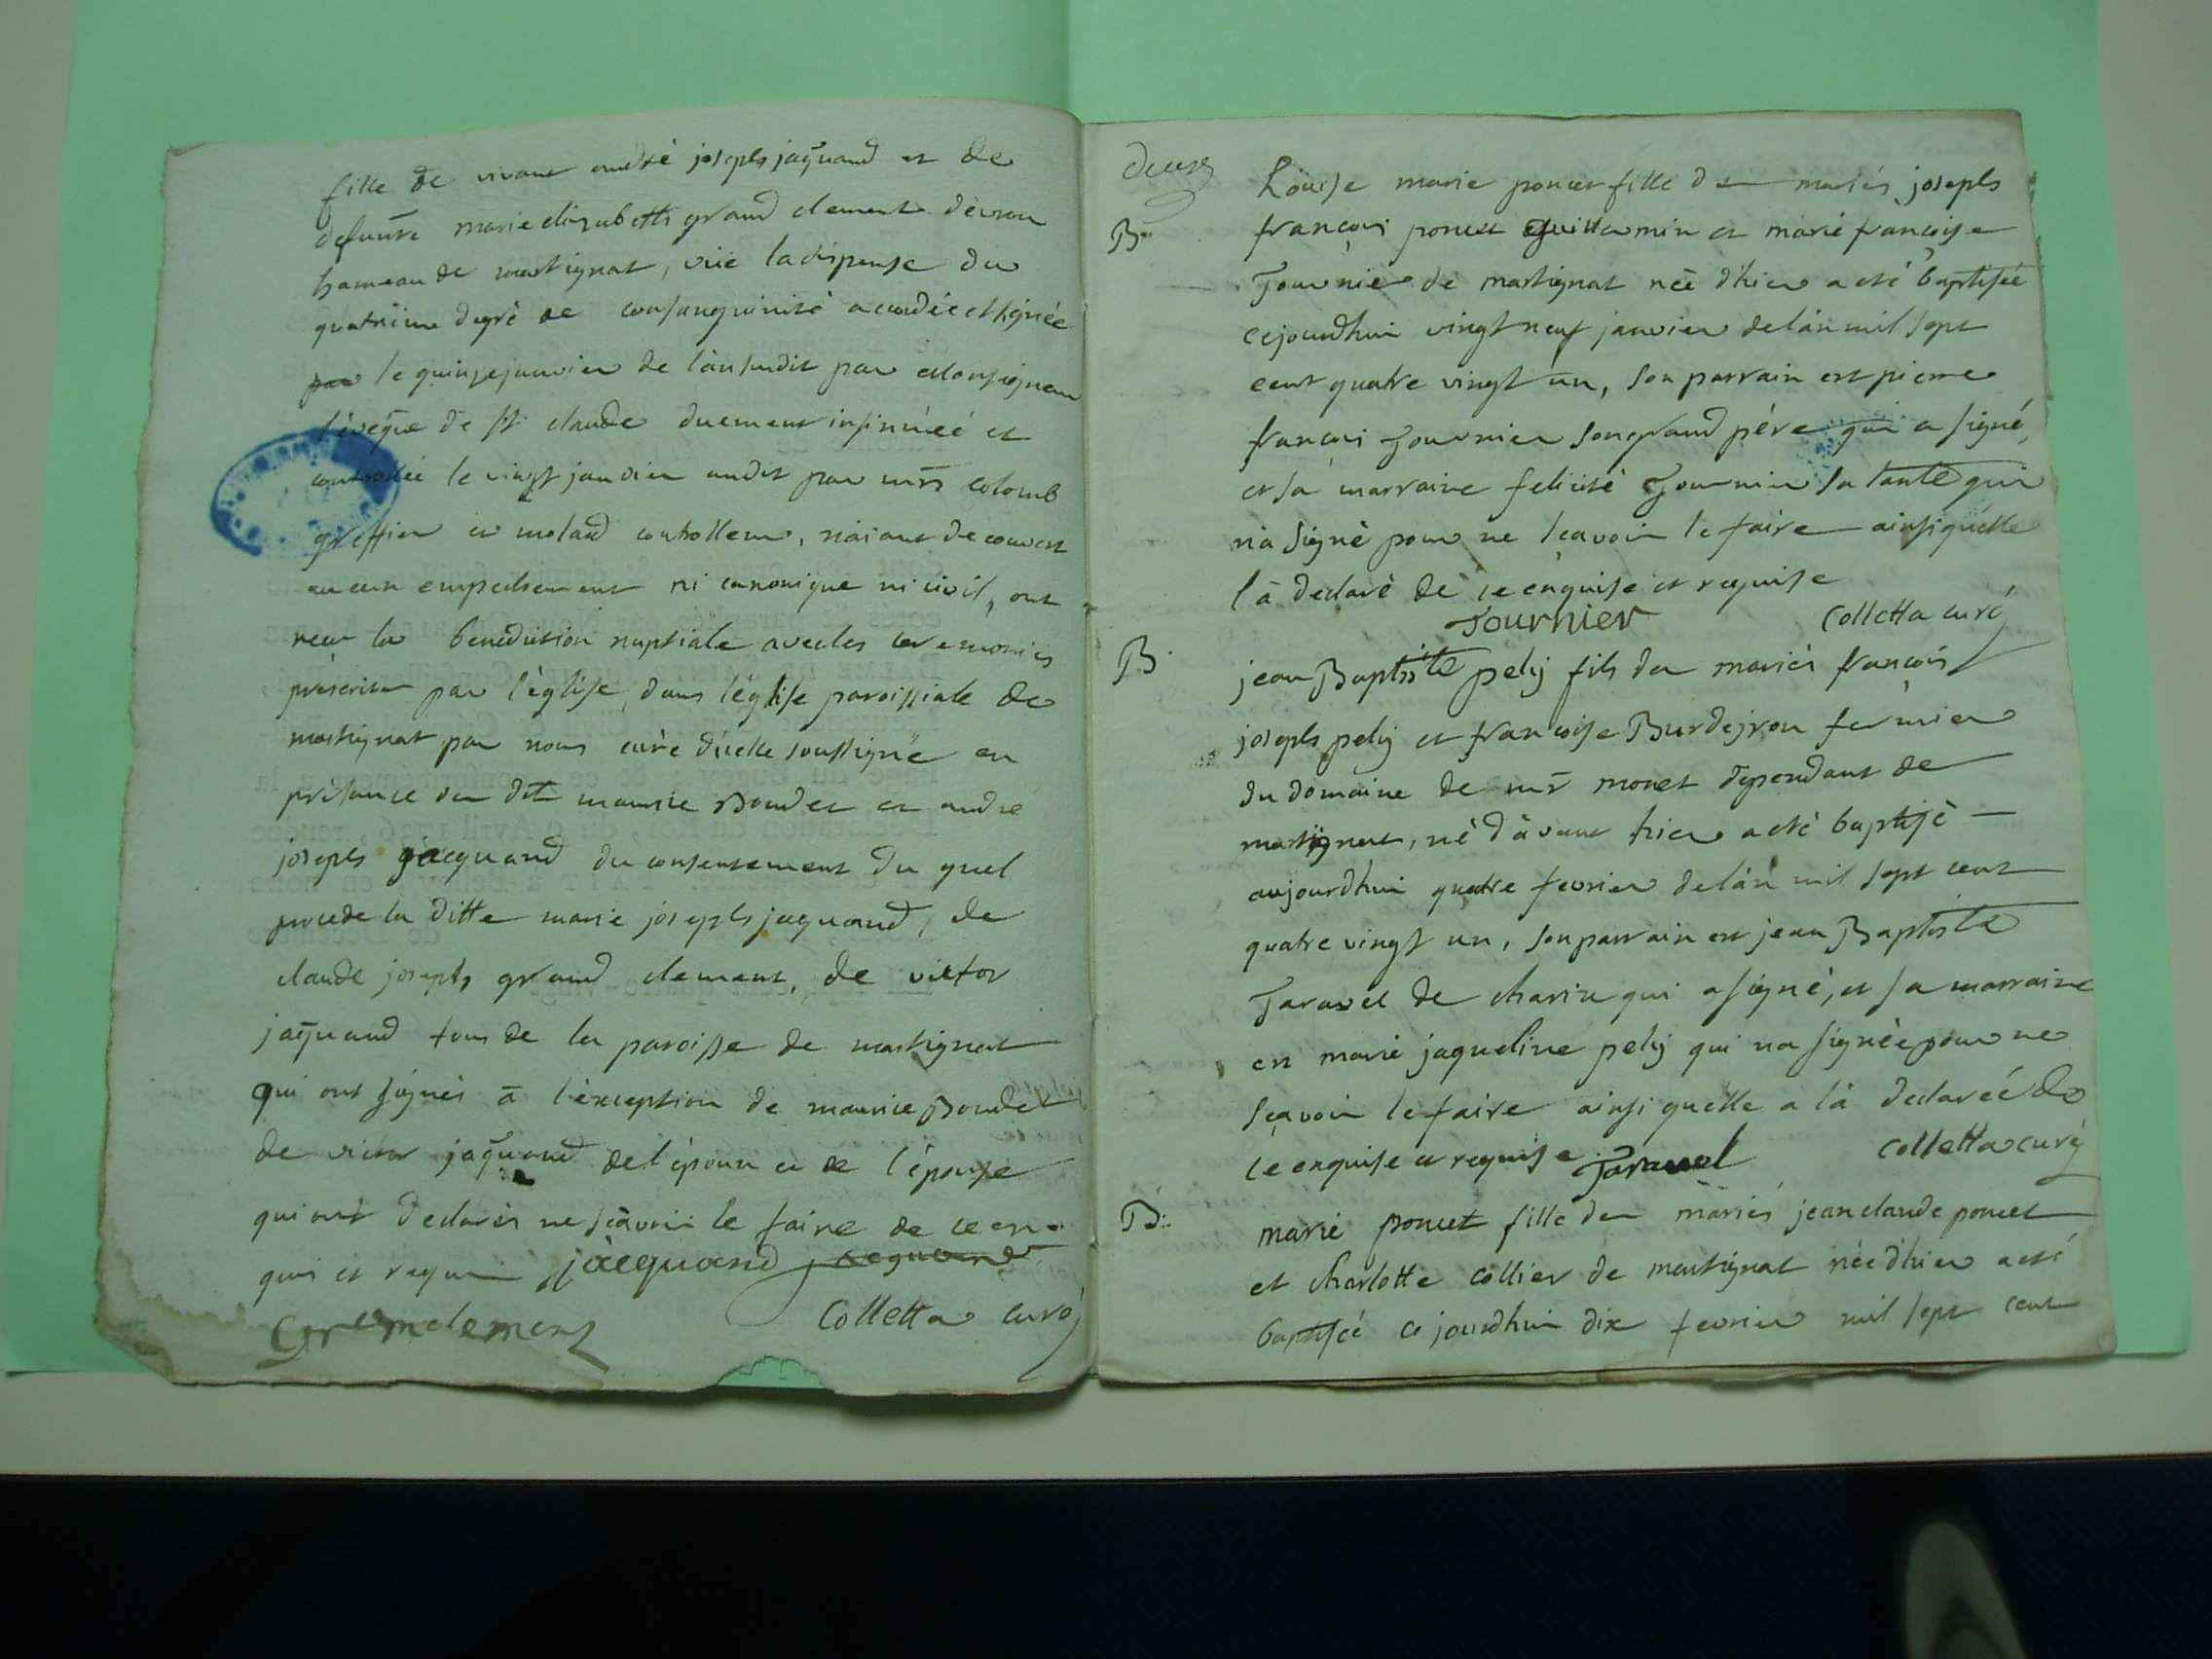 fille de vivant andré joseph jaquand et de
defunte marie elizabeth grand clement d'evron
hameau de martignat, vüe la dispense du
quatrième degré de consanguinité accordée et signée
par le quinze janvier de l'an susdit par Monseigneur
l'évêque de St claude duement insinuéé et
controllée le vingt janvier audit par mrs colomb
greffier et moland controlleur, n'aiant decouvert
aucun empechement ni canonique ni civil, ont
recu la benediction nuptiale avec les ceremonies
prèscrites par l'église, dans l'église paroissiale de
martignat par nous curé d'icelle soussigné en
présence du dit maurice Boudet et andré
joseph jacquand du consentement du quel
procede la ditte marie joseph jaquand, de
claude joseph grand clement, de victor
jaquand tous de la paroisse de martignat
qui ont signés à l'exception de maurice Boudet
de victor jaquand de l'époux et de l'épouse
qui ont declarés ne sçavoir le faire de ce en-
quis et requis jacquand jacquand
Grandclement Colletta curé
deux
B. Loüise marie poncet fille des mariés joseph
françois poncet Guillermin et marie françoise
Tournier de martignat née d'hier a eté baptisée
cejourdhui vingt neuf janvier de l'an mil sept
cent quatre vingt un, son parrain est pierre
françois Tournier son grand père qui a signé,
et sa marraine felicité Tournier sa tante qui
n'a signé pour ne sçavoir le faire ainsi quelle
l'a declaré de ce enquise et requise
Tournier Colletta curé
B. jean Baptiste pely fils des mariés françois
joseph pely et françoise Burdeyron fermier
du domaine de mr monet dependant de
martignat, né d'avant hier a eté baptisé
aujourdhui quatre fevrier de l'an mil sept cent
quatre vingt un, son parrain est jean Baptiste
Taravel de charix qui a signé, et sa marraine
est marie jaqueline pely qui n'a signée pour ne
sçavoir le faire ainsi quelle a la declaréé de
ce enquise et requise Taravel Colletta curé
B. marie poncet fille des mariés jean claude poncet
et charlotte collier de martignat née d'hier a eté
baptisée ce jourdhui dix fevrier mil sept cent